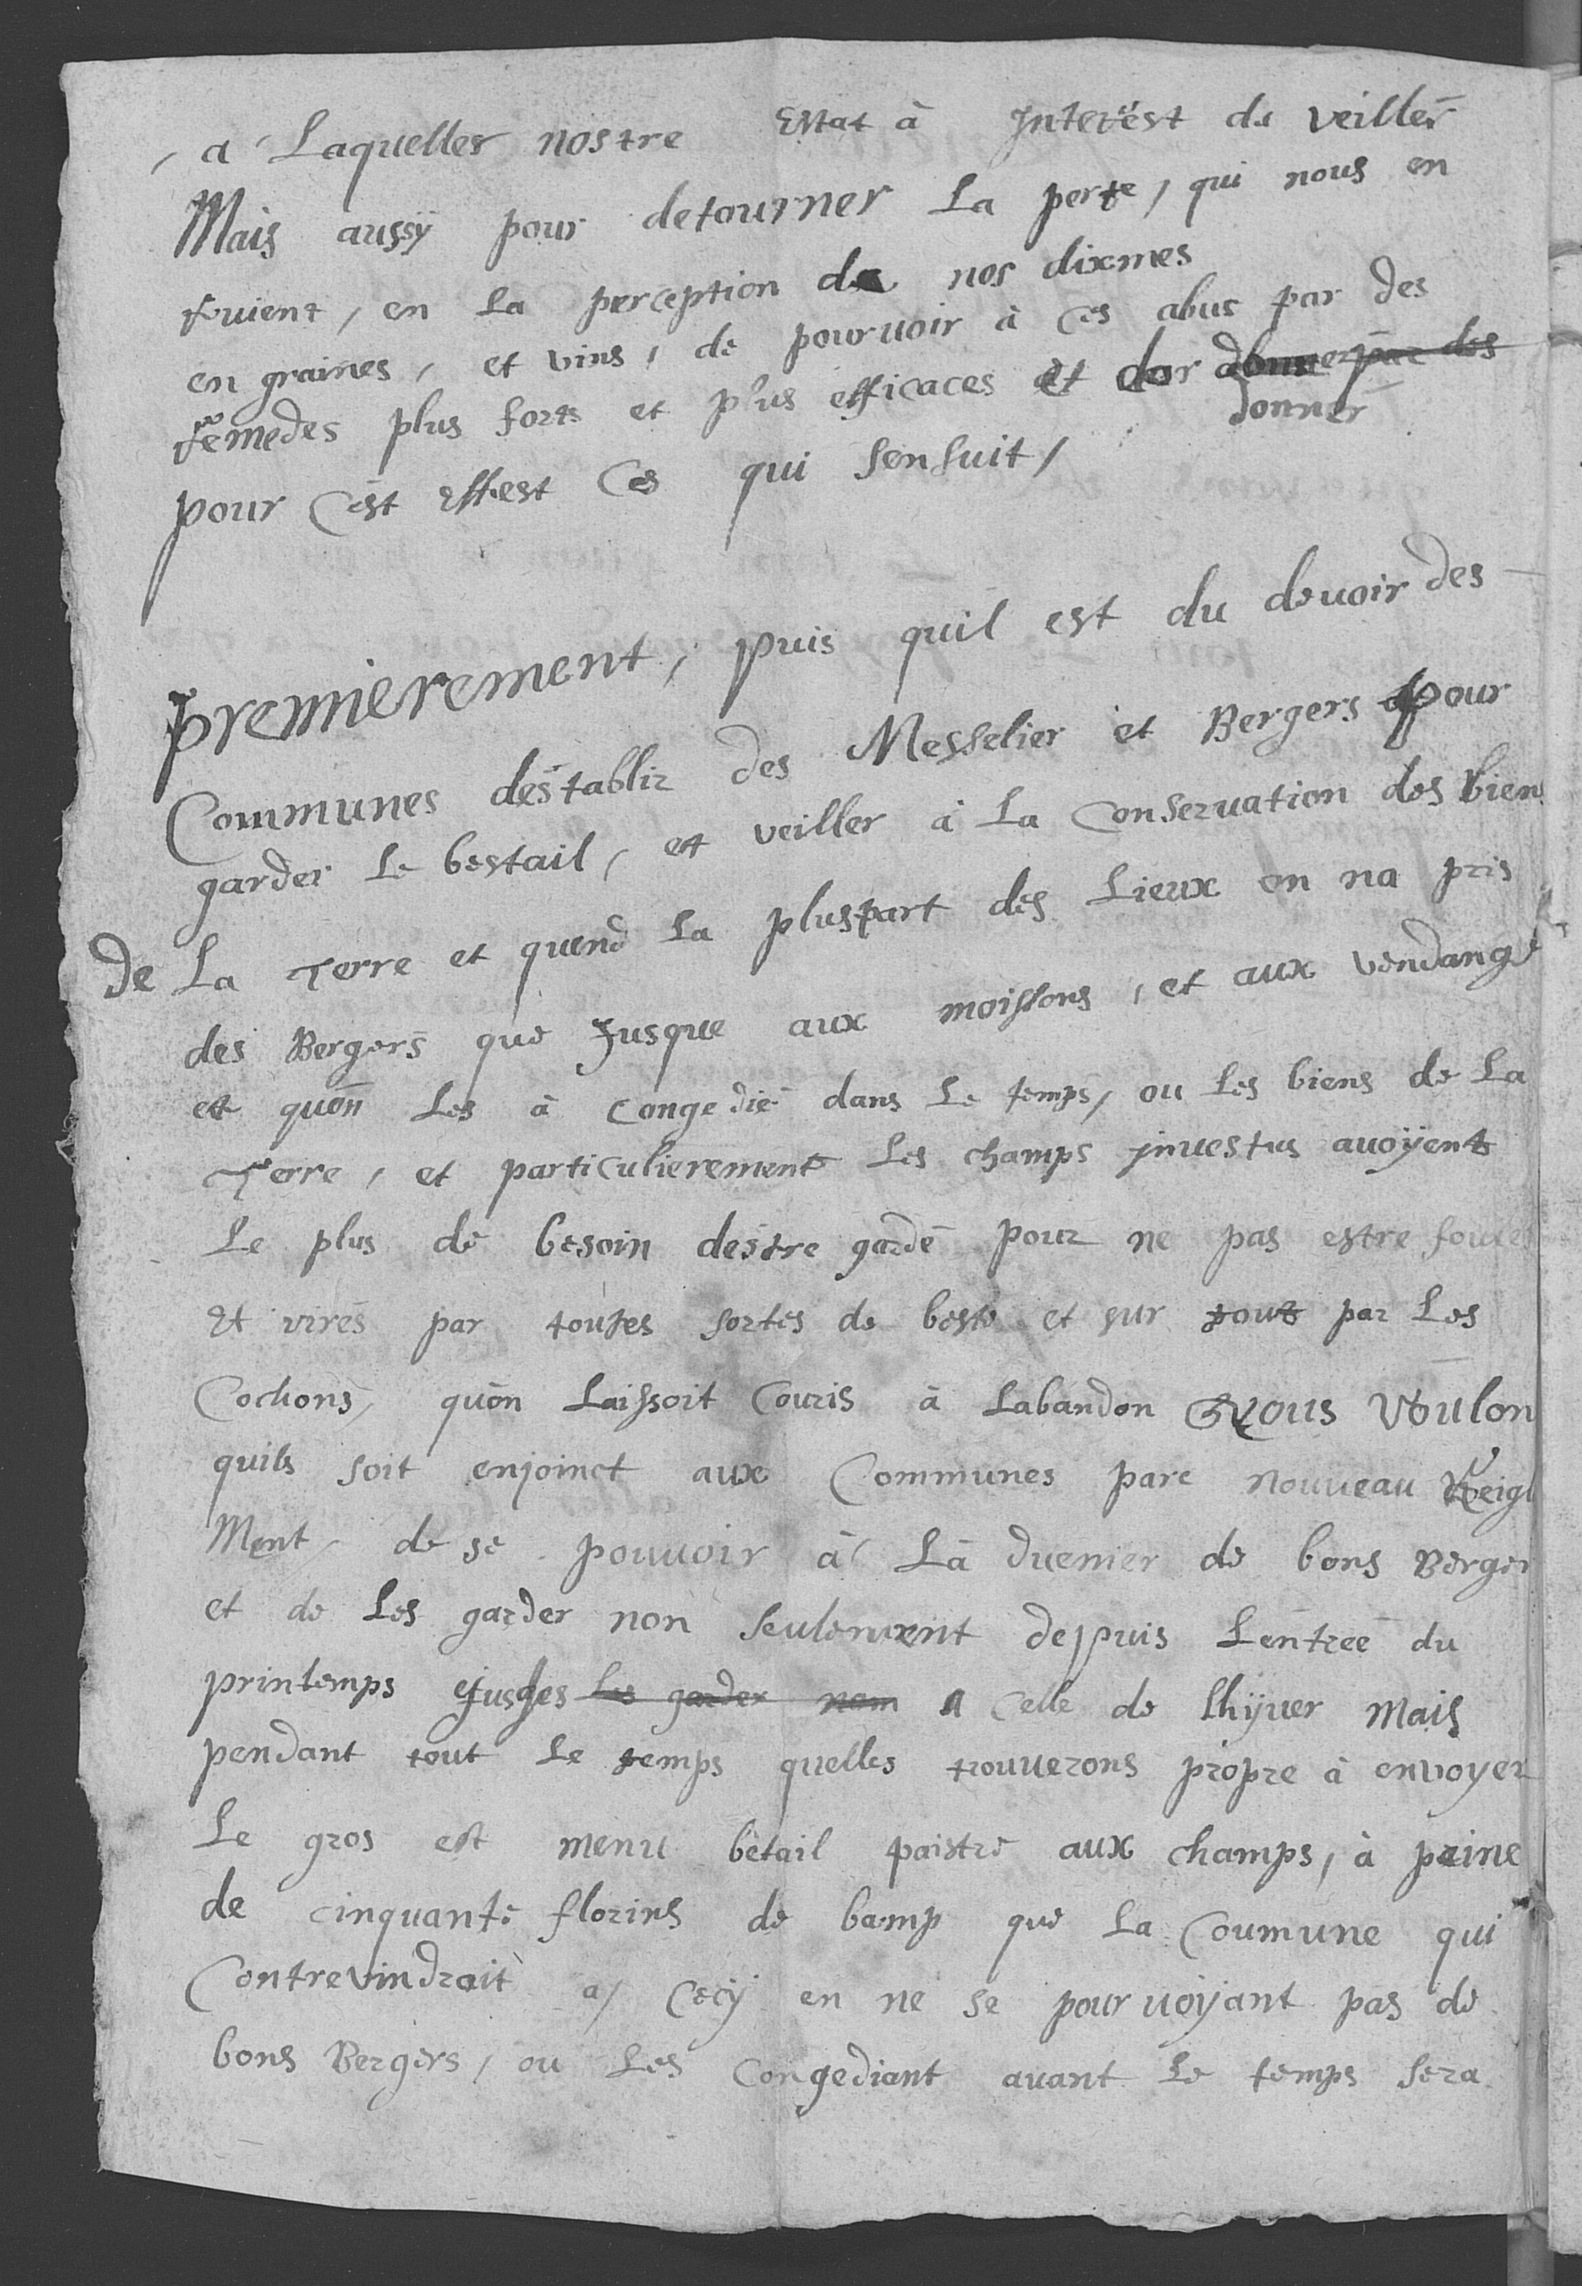 a Laquelles nostre Estat à Interëst de veiller
Mais aussÿ pour detourner La perte, qui nous en
reuient, en La perception de nos dixmes
en graines, et vins, de pouruoir à ces abus par des
remedes plus forts et plus efficaces et dor donner par des
donner
pour cest effest Ces qui sensuit,
premierement, puis quil est du deuoir des
Communes destablir des Messelier et Bergers pour
garder Le bestail, et veiller à La Conseruation des bien
de La Terre et quend La pluspart des Lieux on na pris
des Bergers que Jusque aux moissons, et aux vendange
et quon Les à congedié dans Le temps, ou Les biens de La
Terre, et particulierement Les champs jnuestus auoÿent
Le plus de besoin destre gardé pour ne pas estre fouiés
Et virés par toutes sortes de beste et sur tout par Les
Cochons, quon Laissoit Couris à Labandon Nous Voulon
quils soit enjoinct aux Communes pare nouueau Reigl
Ment, de se pouuoir à La duenier de bons Berger
et de Les garder non seulement depuis Lentrée du
printemps Jusques les garder nom a Celle de Lhÿuer Mais
pendant tout Le temps quelles trouuerons propre à envoyer
Le gros est menu betail paistre aux champs, à peine
de cinquante florins de bamp que La Coumune qui
Contrevindrait a, Cecÿ en ne se pour uoÿant pas de
bons Bergers, ou Les Congediant auant Le temps sera